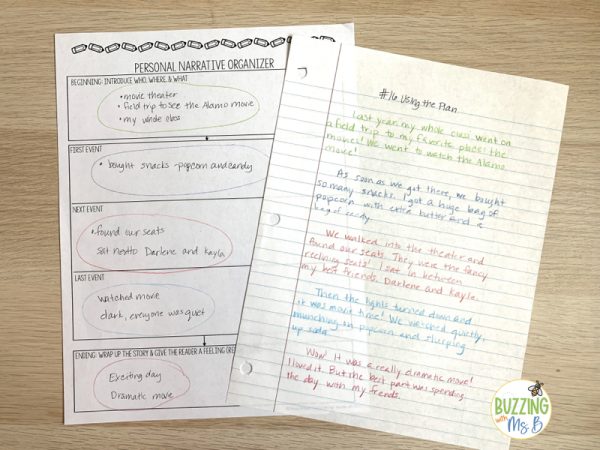 PERSONAL NARRATIVE ORGANIZER
BEGINNING: INTRODUCE WHO, WHERE, & WHAT
• movie theater
• field trip to see the Alamo movie
• my whole class
FIRST EVENT
• bought snacks - popcorn and candy
NEXT EVENT
• found our seats
sat next to Darlene and Kayla
LAST EVENT
watched movie
dark, everyone was quiet
ENDING: WRAP UP THE STORY & GIVE THE READER A FEELING
Exciting day
Dramatic movie
#16 Using the Plan
Last year, my whole class went on
a field trip to my favorite place! the
movies! We went to watch the Alamo
movie!
As soon as we got there, we bought
so many snacks. I got a huge bag of
popcorn with extra butter and a
bag of candy.
We walked into the theater and
found our seats. They were the fancy
reclining seats! I sat in between
my best friends, Darlene and Kayla.
Then the lights turned down and
it was movie time! We watched quietly,
munching on popcorn and slurping
up soda.
Wow! It was a really dramatic movie!
I loved it. But the best part was spending
the day with my friends.
BUZZING
with
Ms. B